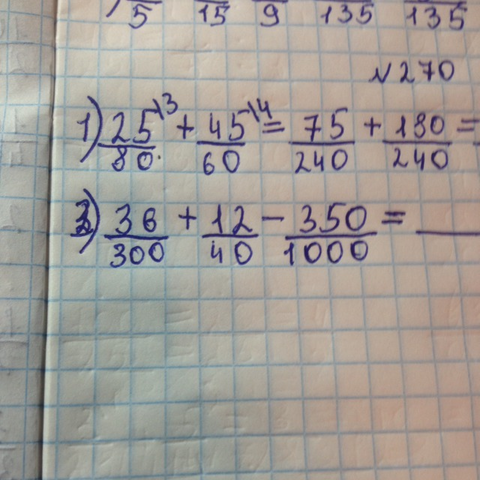 5 15 9 135 135
№ 270
1) 25\3/80 + 45\4/60 = 75/240 + 180/240 =
2) 36/300 + 12/40 - 350/1000 =